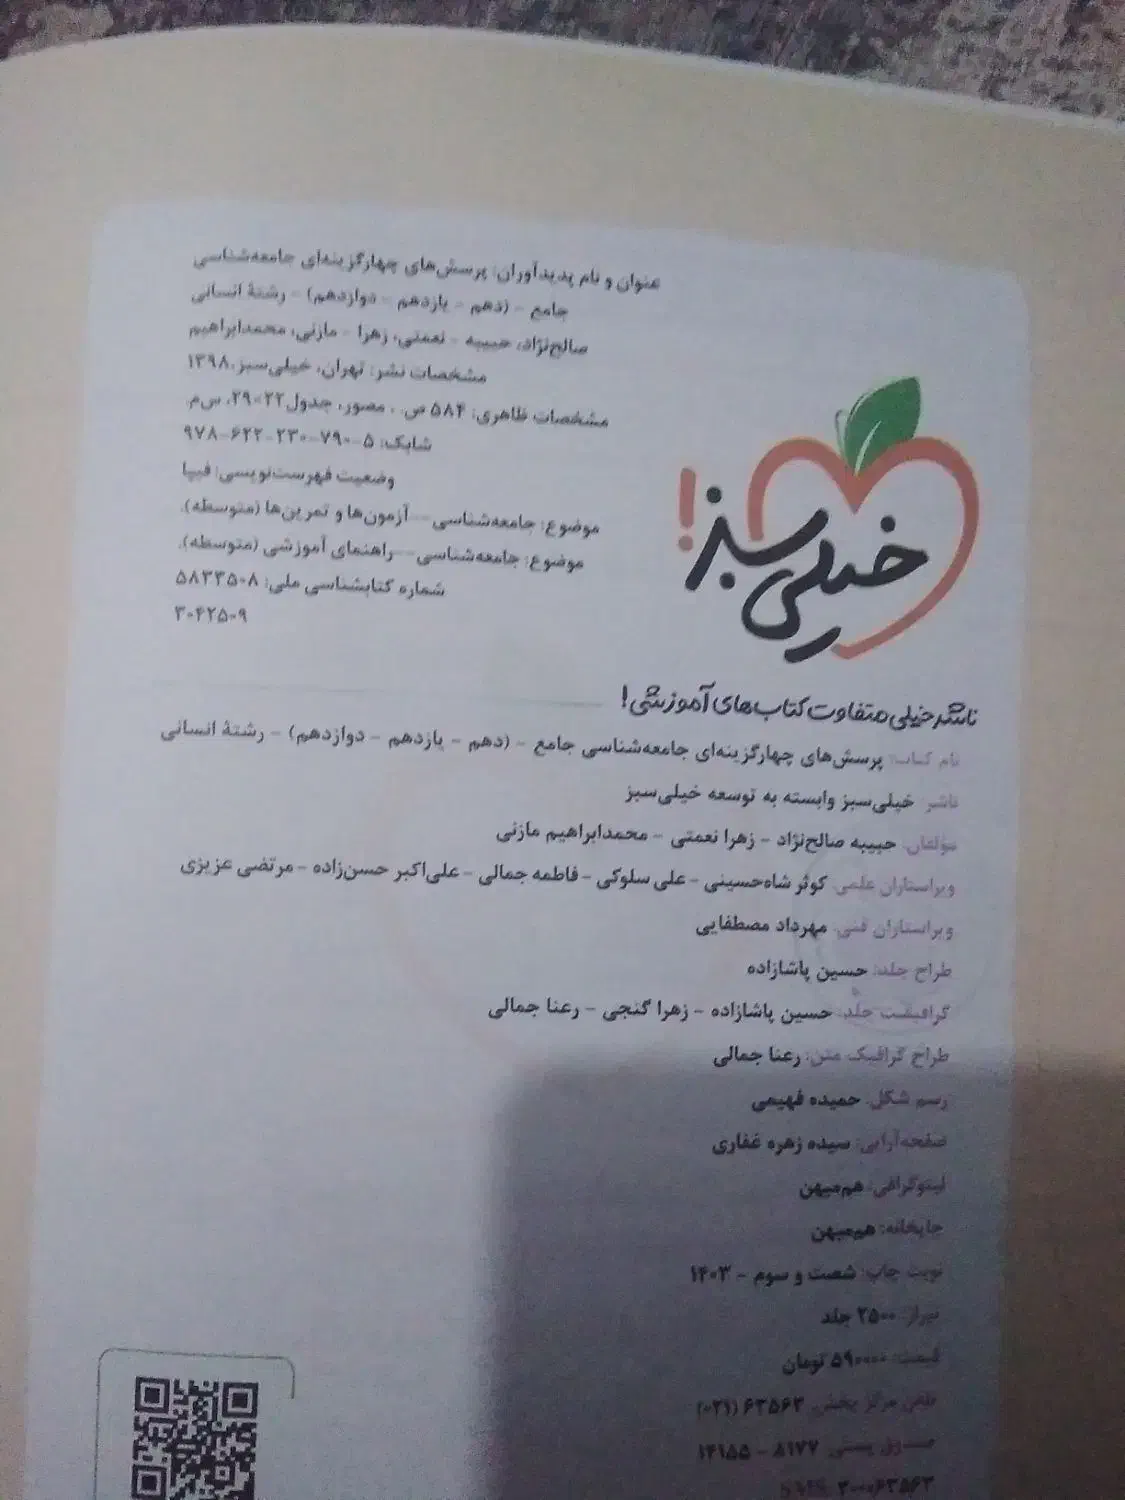 عنوان و نام پدیدآوران: پرسش‌های چهارگزینه‌ای جامعه‌شناسی
جامع - (دهم - یازدهم - دوازدهم) - رشتهٔ انسانی
صالح‌نژاد، حبیبه - نعمتی، زهرا - مازنی، محمدابراهیم
مشخصات نشر: تهران، خیلی‌سبز، ۱۳۹۸
مشخصات ظاهری: ۵۸۴ ص. ، مصور، جدول ۲۲×۲۹، س‌م.
شابک: ۵-۷۹۰-۲۳۰-۶۲۲-۹۷۸
وضعیت فهرست‌نویسی: فیپا
موضوع: جامعه‌شناسی--آزمون‌ها و تمرین‌ها (متوسطه).
موضوع: جامعه‌شناسی--راهنمای آموزشی (متوسطه).
شماره کتابشناسی ملی: ۵۸۳۳۵۰۸
۳۰۴۲۵۰۹
خیلی سبز!
ناشر خیلی متفاوت کتاب‌های آموزشی!
نام کتاب: پرسش‌های چهارگزینه‌ای جامعه‌شناسی جامع - (دهم - یازدهم - دوازدهم) - رشتهٔ انسانی
ناشر: خیلی‌سبز وابسته به توسعه خیلی‌سبز
مؤلفان: حبیبه صالح‌نژاد - زهرا نعمتی - محمدابراهیم مازنی
ویراستاران علمی: کوثر شاه‌حسینی - علی سلوکی - فاطمه جمالی - علی‌اکبر حسن‌زاده - مرتضی عزیزی
ویراستاران فنی: مهرداد مصطفایی
طراح جلد: حسین پاشازاده
گرافیست جلد: حسین پاشازاده - زهرا گنجی - رعنا جمالی
طراح گرافیک متن: رعنا جمالی
رسم شکل: حمیده فهیمی
صفحه‌آرایی: سیده زهره غفاری
لیتوگرافی: هم‌میهن
چاپخانه: هم‌میهن
نوبت چاپ: شصت و سوم - ۱۴۰۳
تیراژ: ۲۵۰۰ جلد
قیمت: ۵۹۰۰۰۰ تومان
تلفن مرکز پخش: ۶۳۵۶۳ (۰۲۱)
صندوق پستی: ۸۱۷۷ - ۱۴۱۵۵
۳۰۰۰۶۳۵۶۳